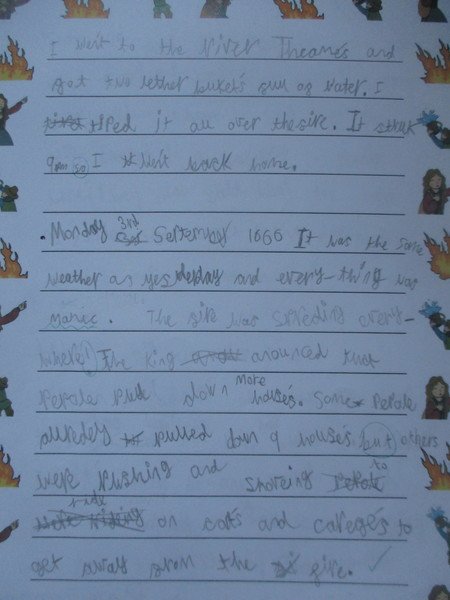 I went to the river Theames and
got two lether bukets full of water. I
tiped it all over the fire. It struk
9pm so I went back home.
Monday 3rd September 1666 It was the same
weather as yesderday and every-thing was
manec. The fire was spreding every-
where! The king anounced that
Pepole put down more houses. Some Pepole
allredey pulled down 9 houses but others
were pushing and shoveing to
ride on carts and careges to
get away from the fire.